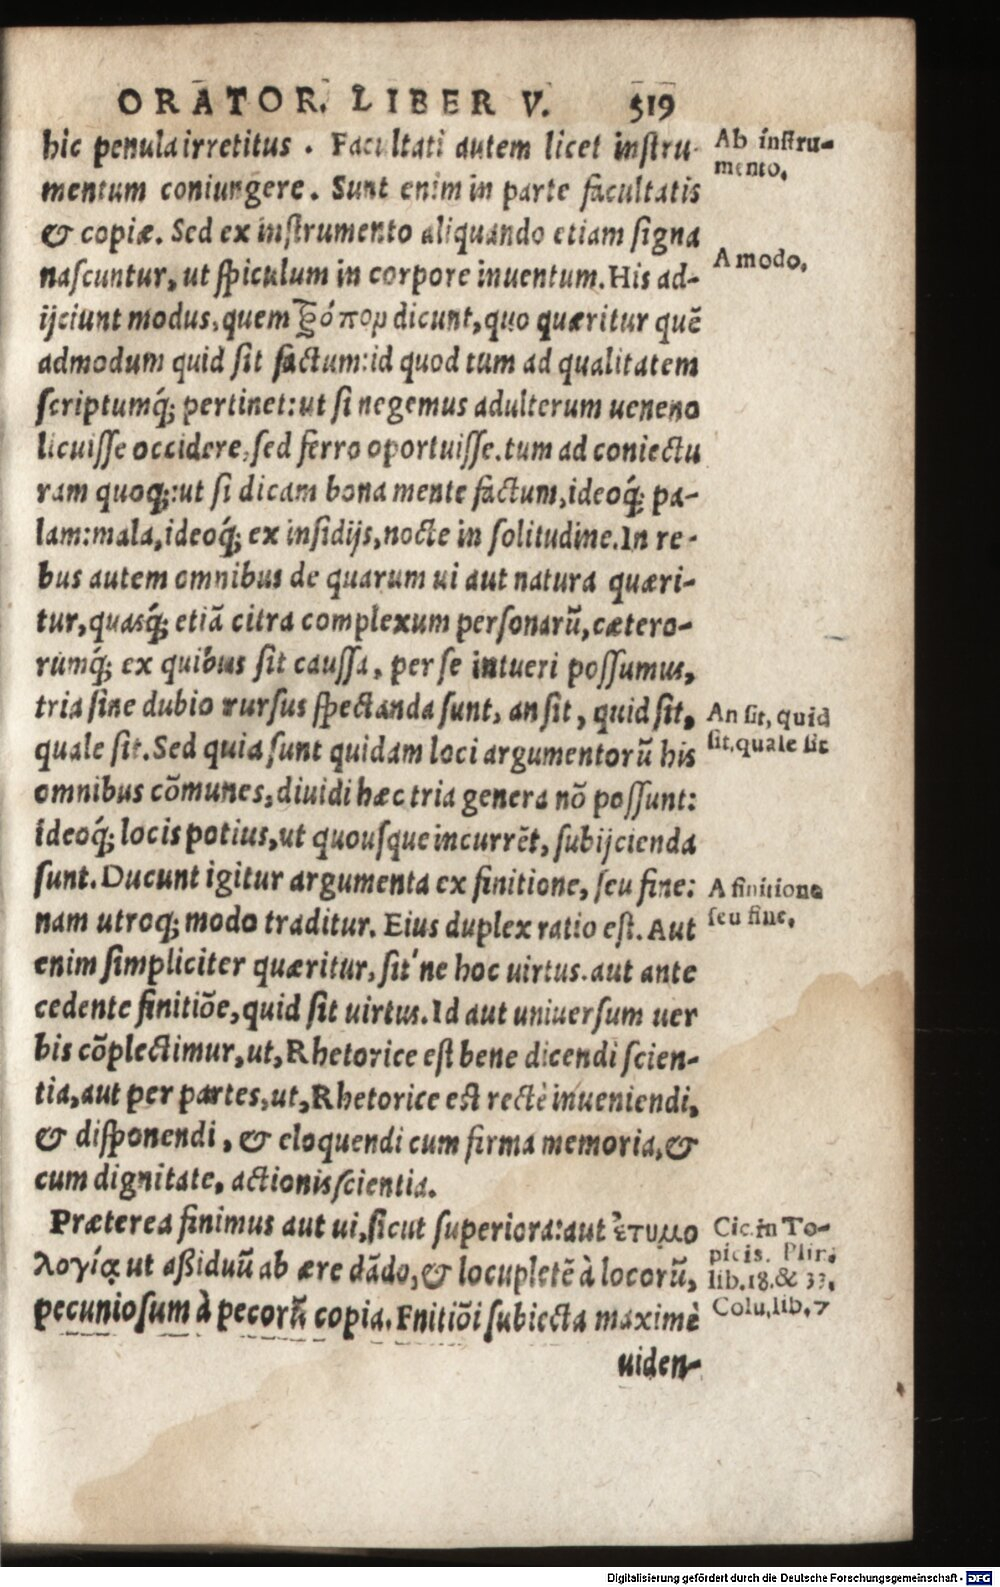 ORATOR. LIBER V. 519
hic penula irretitus . Facultati autem licet instru-
mentum coniungere. Sunt enim in parte facultatis
& copiæ. Sed ex instrumento aliquando etiam signa
nascuntur, ut spiculum in corpore inuentum. His ad-
ijciunt modus, quem τρόπον dicunt, quo quæritur quẽ
admodum quid sit factum: id quod tum ad qualitatem
scriptumq́; pertinet: ut si negemus adulterum ueneno
licuisse occidere, sed ferro oportuisse. tum ad coniectu
ram quoq;: ut si dicam bona mente factum, ideoq́; pa-
lam: mala, ideoq́; ex insidijs, nocte in solitudine. In re-
bus autem omnibus de quarum ui aut natura quæri-
tur, quasq́; etiã citra complexum personarũ, cætero-
rumq́; ex quibus sit caussa, per se intueri possumus,
tria sine dubio rursus spectanda sunt, an sit, quid sit,
quale sit. Sed quia sunt quidam loci argumentorũ his
omnibus cõmunes, diuidi hæc tria genera nõ possunt:
ideoq́; locis potius, ut quousque incurrẽt, subijcienda
sunt. Ducunt igitur argumenta ex finitione, seu fine:
nam utroq; modo traditur. Eius duplex ratio est. Aut
enim simpliciter quæritur, sit'ne hoc uirtus. aut ante
cedente finitiõe, quid sit uirtus. Id aut uniuersum uer
bis cõplectimur, ut, Rhetorice est bene dicendi scien-
tia, aut per partes, ut, Rhetorice est rectè inueniendi,
& disponendi, & eloquendi cum firma memoria, &
cum dignitate, actionis scientia.
Præterea finimus aut ui, sicut superiora: aut ἐτυμο
λογίᾳ ut assiduũ ab ære dãdo, & locupletẽ à locorũ,
pecuniosum à pecorũ copia. Fnitiõi subiecta maximè
uiden-
Ab instru-
mento.
A modo.
An sit, quid
sit, quale sit
A finitione
seu fine.
Cic. in To-
picis. Plin.
lib. 18. & 33.
Colu. lib. 7
Digitalisierung gefördert durch die Deutsche Forschungsgemeinschaft - DFG